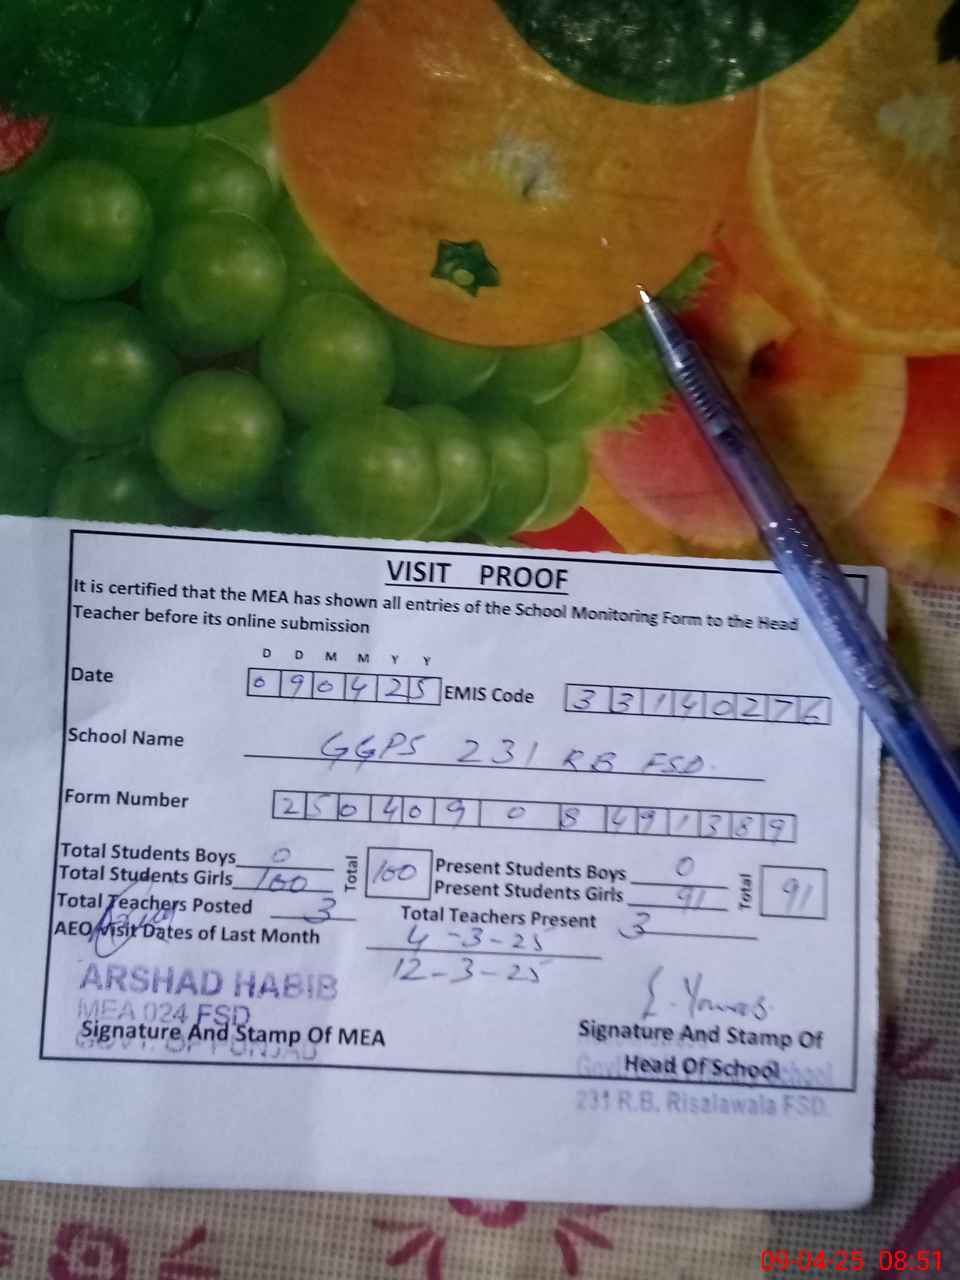 VISIT PROOF
It is certified that the MEA has shown all entries of the School Monitoring Form to the Head
Teacher before its online submission
D D M M Y Y
Date 090425 EMIS Code 33140276
School Name GGPS 231 RB FSD.
Form Number 25040908491389
Total Students Boys 0 Total 100 Present Students Boys 0 Total 91
Total Students Girls 100 Present Students Girls 91
Total Teachers Posted 3 Total Teachers Present 3
AEO Visit Dates of Last Month 4-3-25
12-3-25
ARSHAD HABIB
MEA 024 FSD
Signature And Stamp Of MEA
GOVT. OF PUNJAB
Signature And Stamp Of
Head Of School
School
231 R.B. Risalawala FSD.
09-04-25 08:51